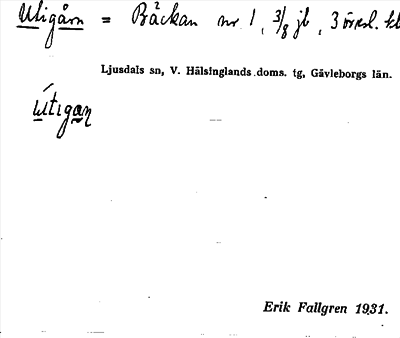 Utigårn = Bäckan nr 1, 3/8 jb, 3 örsl. kl
Ljusdals sn, V. Hälsinglands doms. tg, Gävleborgs län.
útigaɳ
Erik Fallgren 1931.